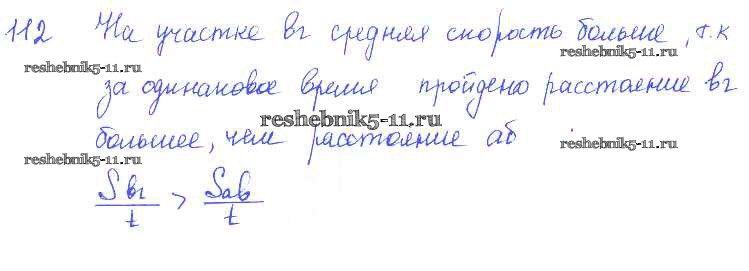 112 На участке вг средняя скорость больше, т.к
reshebnik5-11.ru reshebnik5-11.ru
за одинаковое время пройдено расстояние вг
reshebnik5-11.ru
большее, чем расстояние аб
reshebnik5-11.ru reshebnik5-11.ru
Sвг/t > Sаб/t